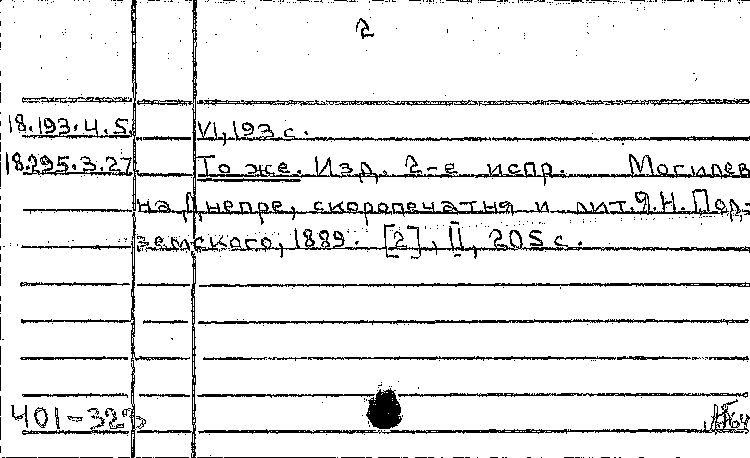 2
18.193.4.5. VI, 193 с.
18.295.3.27. То же. Изд. 2-е испр. Могилев
на Днепре, скоропечатня и лит. Я.Н. Под-
земского, 1889. [2], II, 205 с.
401-323